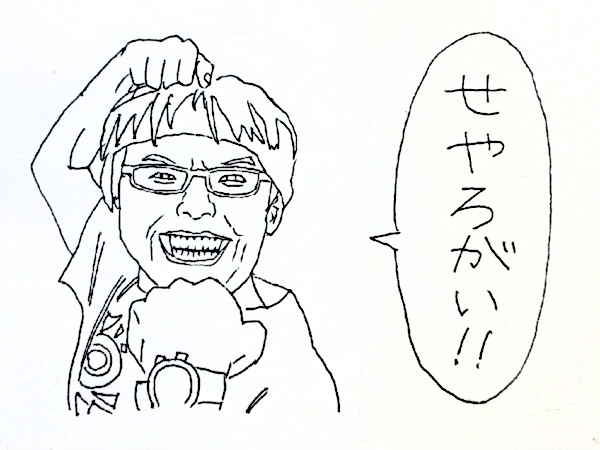 せやろがい!!